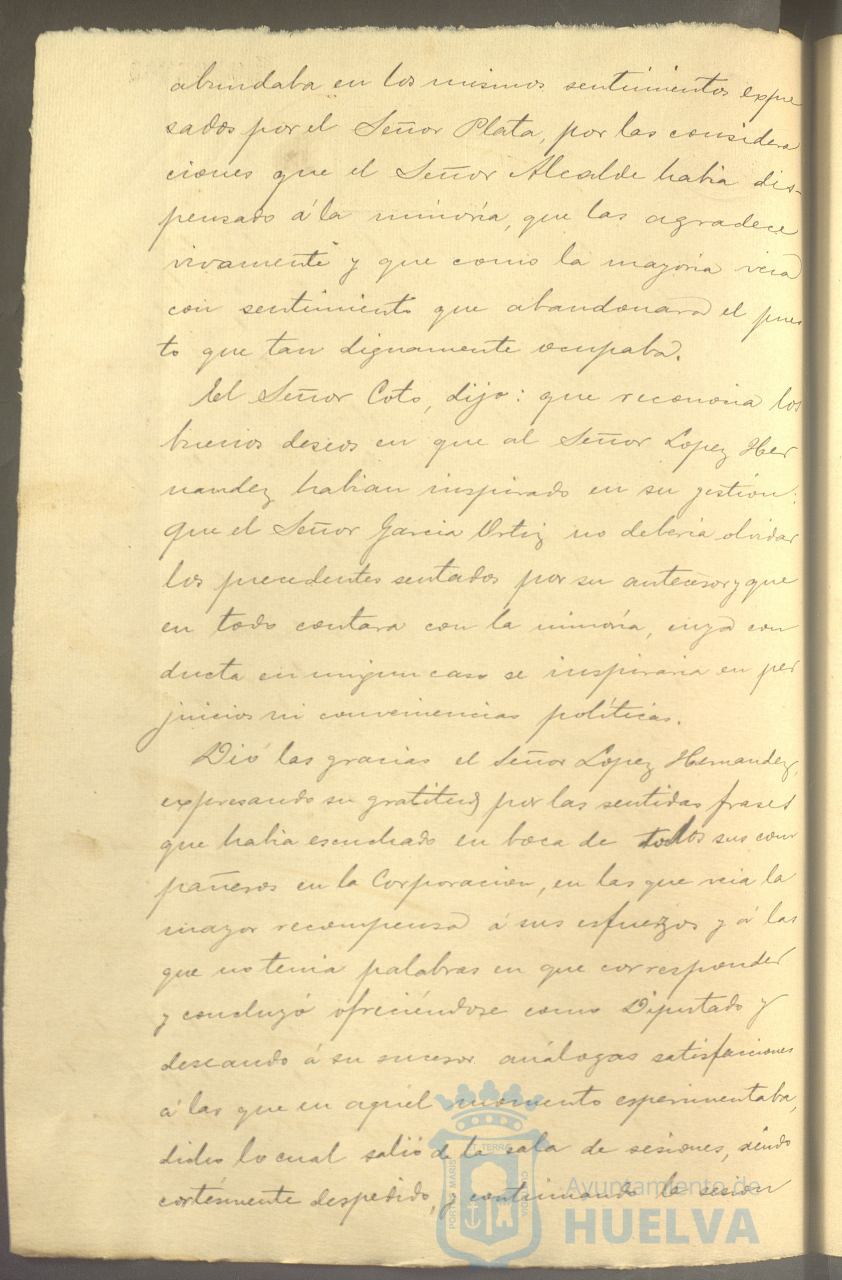 abundaba en los mismos sentimientos expre
sados por el Señor Plata, por las considera
ciones que el Señor Alcalde habia dis-
pensado á la minoría, que las agradece
vivamente y que como la mayoria veia
con sentimiento que abandonara el pues
to que tan dignamente ocupaba.
El Señor Coto, dijo: que reconocia los
buenos deseos en que al Señor Lopez Her
nandez habian inspirado en su gestion:
que el Señor Garcia Ortiz no deberia olvidar
los precedentes sentados por su antecesor y que
en todo contara con la minoría, cuya con
ducta en ningun caso se inspiraria en per
juicios ni conveniencias políticas.
Dió las gracias el Señor Lopez Hernandez,
expresando su gratitud por las sentidas frases
que habia escuchado en boca de todos sus com
pañeros en la Corporacion, en las que veia la
mayor recompensa á sus esfuerzos y á las
que no tenia palabras en que corresponder
y concluyó ofreciéndose como Diputado y
deseando á su sucesor análogas satisfacciones
á las que en aquel momento experimentaba,
dicho lo cual salió de la sala de sesiones, siendo
cortésmente despedido, y continuando la sesion
PORTUS MARIS ET TERRÆ CUSTODIA
Ayuntamiento de
HUELVA